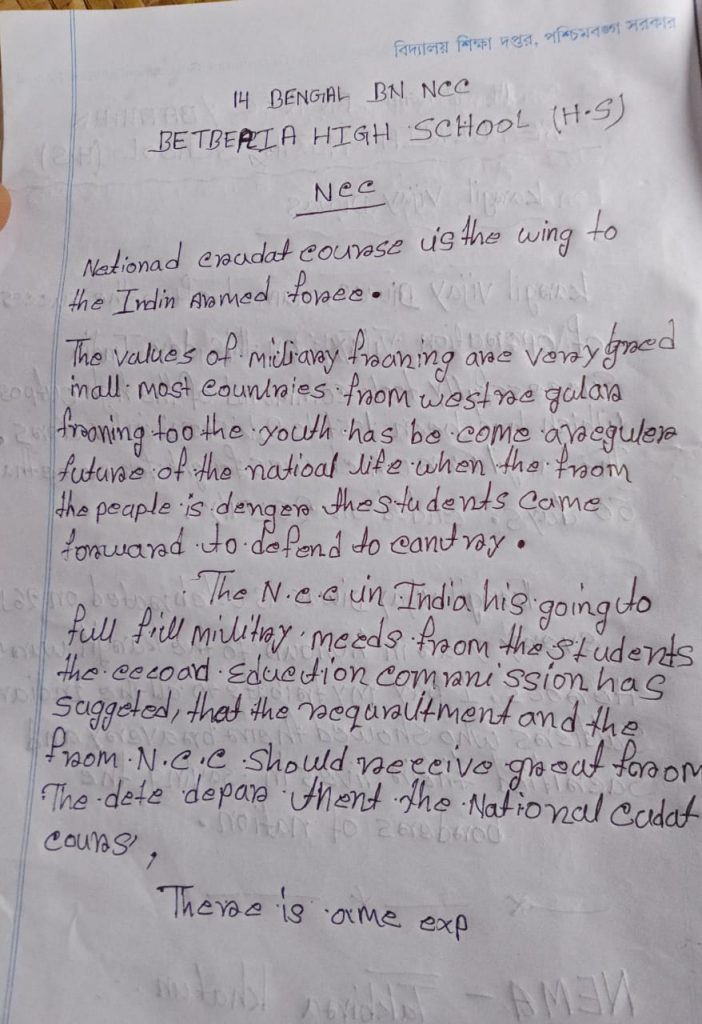 বিদ্যালয় শিক্ষা দপ্তর, পশ্চিমবঙ্গ সরকার
14 BENGAL BN NCC
BETBERIA HIGH SCHOOL (H.S)
NCC
Nationad cradat course is the wing to
the Indin Armed forcee.
The values of miliary fraaning are very greed
inall most countries from westre gulara
frooning too the youth has be come aregulere
future of the natioal life when the from
the peaple is denger thestudents came
forward to defend to cantray.
The N.c.c in India his going to
full fill military meeds from the students
the eecoad Eduection commission has
Saggeted, that the requraultment and the
from N.C.C should receive great forom
The dete depare thent the National Cadat
cours,
Therae is aime exp